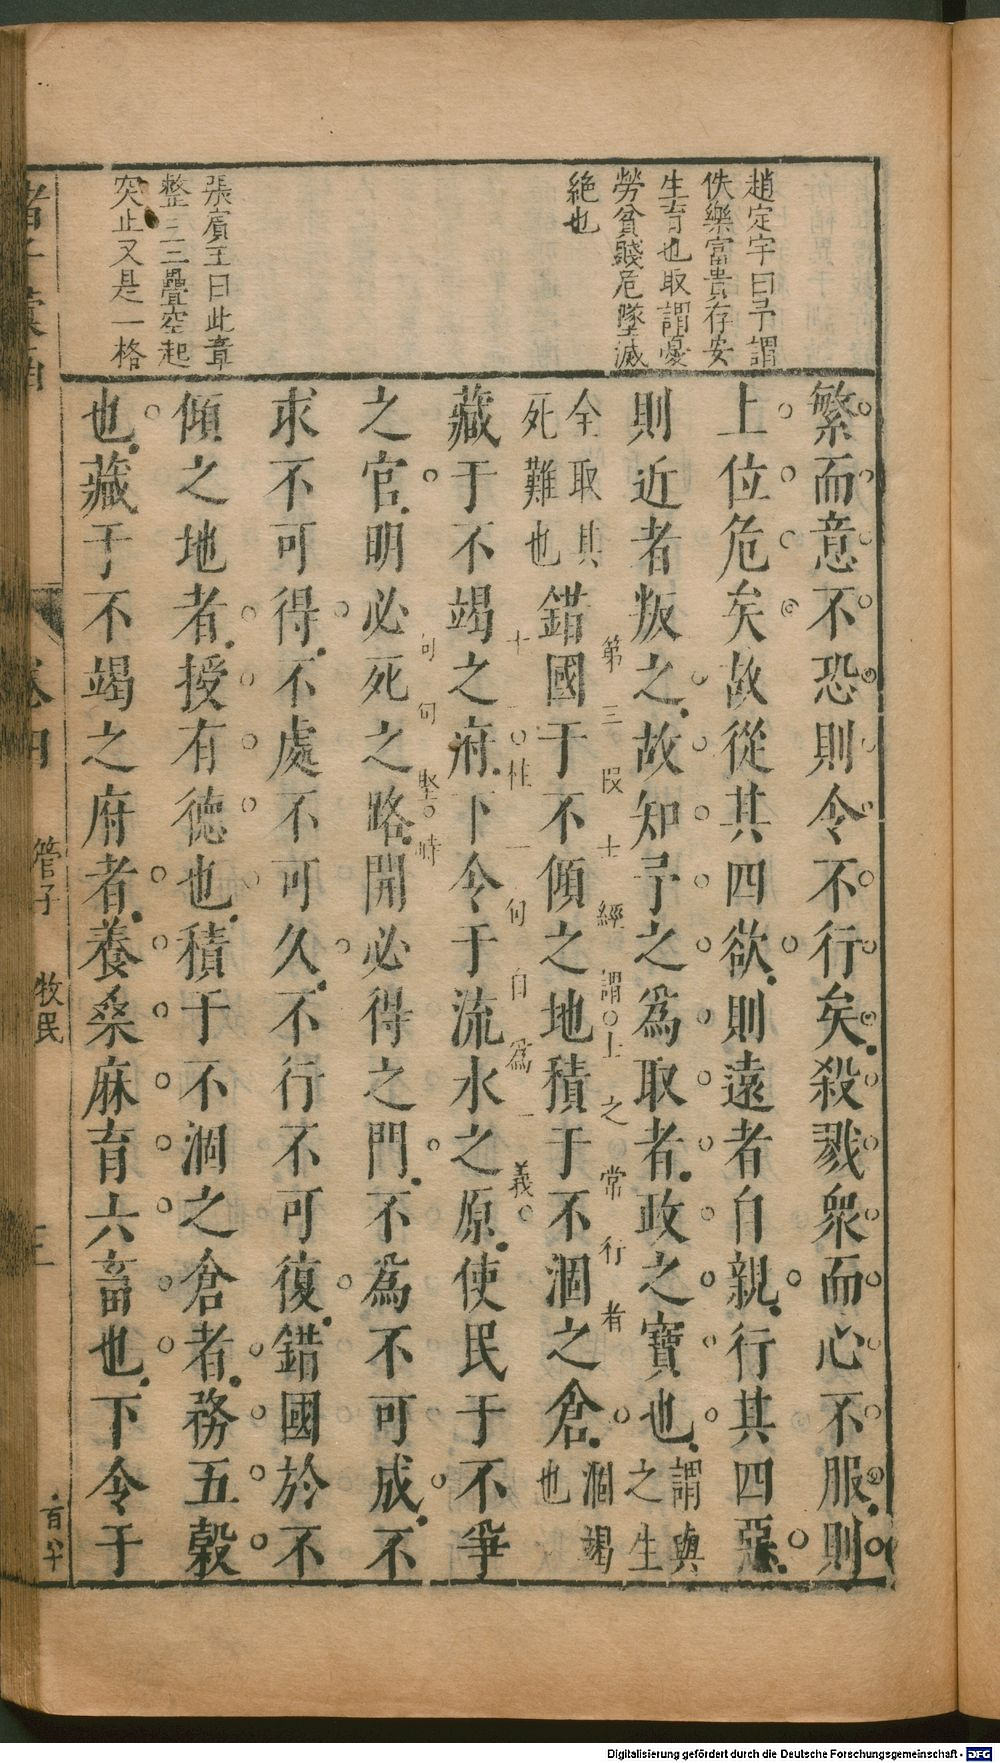 趙定宇曰予謂
佚樂富貴存安
生育也取謂憂
勞貧賤危墜滅
絕也
張賓王曰此章
整三三疊空起
突止又是一格
繁而意不恐則令不行矣殺戮衆而心不服則
上位危矣故從其四欲則遠者自親行其四惡
則近者叛之故知予之爲取者政之寶也謂與之生
全取其死難也錯國于不傾之地積于不涸之倉涸竭也
第三段士經謂上之常行者
藏于不竭之府下令于流水之原使民于不爭
十一柱一句自爲一義
之官明必死之略開必得之門不爲不可成不
句句堅時
求不可得不處不可久不行不可復錯國於不
傾之地者授有德也積于不涸之倉者務五穀
也藏于不竭之府者養桑麻育六畜也下令于
管子
牧民
三
Digitalisierung gefördert durch die Deutsche Forschungsgemeinschaft - DFG